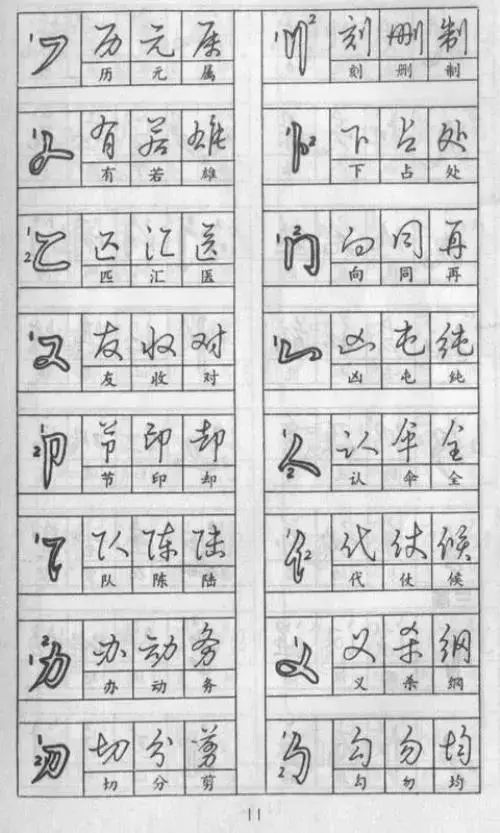 厂 历 元 属
历 元 属
𠂇 有 若 雄
有 若 雄
匚 匹 汇 医
匹 汇 医
又 友 收 对
友 收 对
卩 节 印 却
节 印 却
阝 队 陈 陆
队 陈 陆
力 办 动 务
办 动 务
刀 切 分 剪
切 分 剪
刂 刻 删 制
刻 删 制
卜 下 占 处
下 占 处
冂 向 同 再
向 同 再
凵 凶 屯 纯
凶 屯 纯
人 认 伞 全
认 伞 全
亻 代 仗 候
代 仗 候
乂 义 杀 纲
义 杀 纲
勹 勾 勿 均
勾 勿 均
11